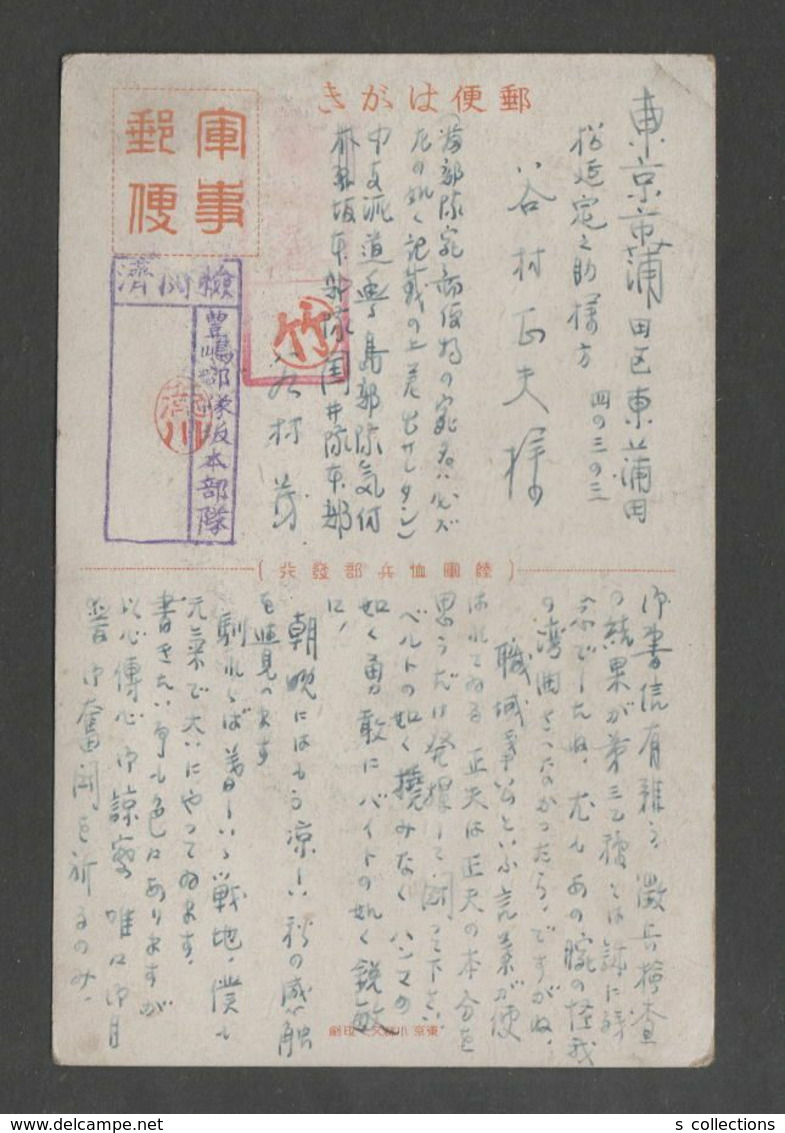 郵便はがき
軍事
郵便
東京市蒲田区東蒲田
四の三の三
松延定之助様方
谷村正夫様
左の如く記載の上差出サレタシ)
中支派遣豊島部隊気付
坂本部隊国井隊本部
谷村
竹
檢閲濟
豐嶋部隊坂本部隊
(陸軍恤兵部發行)
御書信有難う、徴兵検査
の結果が第三乙種とは誠に残
念でしたね、尤もあの腕の怪我
の湾曲さへなかったら、ですがね、
職域奉公といふ言葉が使
はれてゐる 正夫は正夫の本分を
思うだけ発揮して、闘って下さい
ベルトの如く撓みなく ハンマの
如く勇敢にバイトの如く鋭敏
に、
朝晩にはもう凉しい秋の感触
を見つけます
馴れゝば暮しいゝ戦地、僕も
元気で大いにやってゐます、
書きたい事も色々ありますが
以心傳心御諒察 唯々御自
愛御奮闘を祈るのみ、
東京 印刷
s collections